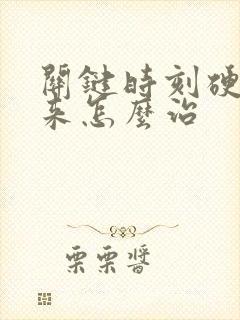 關鍵時刻硬
來怎麼治
栗栗醬